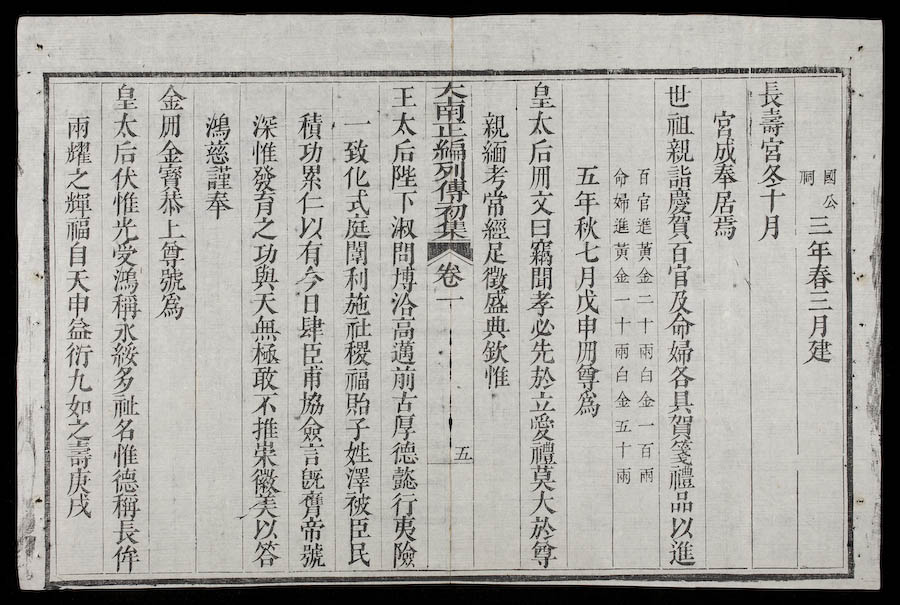 國公
祠
三年春三月建
長壽宮冬十月
宮成奉居焉
世祖親詣慶賀百官及命婦各具賀箋禮品以進
百官進黃金二十兩白金一百兩
命婦進黃金一十兩白金五十兩
五年秋七月戊申冊尊爲
皇太后冊文曰竊聞孝必先於立愛禮莫大於尊
親緬考常經足徵盛典欽惟
大南正編列傳初集 卷一 五
王太后陛下淑問博洽高邁前古厚德懿行夷險
一致化式庭闈利施社稷福貽子姓澤被臣民
積功累仁以有今日肆臣甫協僉言旣膺帝號
深惟發育之功與天無極敢不推崇徽美以答
鴻慈謹奉
金冊金寶恭上尊號爲
皇太后伏惟光受鴻稱永綏多祉名惟德稱長侔
兩耀之輝福自天申益衍九如之壽庚戌